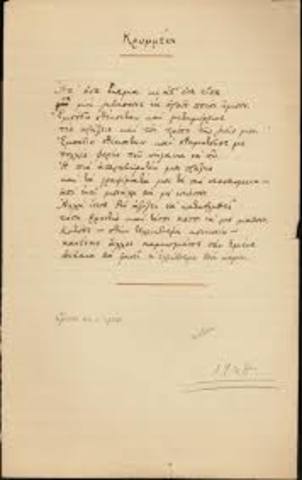 Κρυμμένα
Απ' όσα έκαμα κι απ' όσα είπα
να μη ζητήσουνε να βρουν ποιος ήμουν.
Εμπόδιο στέκονταν και μεταμόρφωνε
τες πράξεις και τον τρόπο της ζωής μου.
Εμπόδιο στέκονταν και σταματούσε με
πολλές φορές που πήγαινα να πω.
Οι πιο απαρατήρητές μου πράξεις
και τα γραψίματά μου τα πιο σκεπασμένα —
από εκεί μονάχα θα με νιώσουν.
Αλλά ίσως δεν αξίζει να καταβληθεί
τόση φροντίς και τόσος κόπος να με μάθουν.
Κατόπι — στην τελειοτέρα κοινωνία —
κανένας άλλος καμωμένος σαν εμένα
βέβαια θα φανεί κι ελεύθερα θα κάμει.